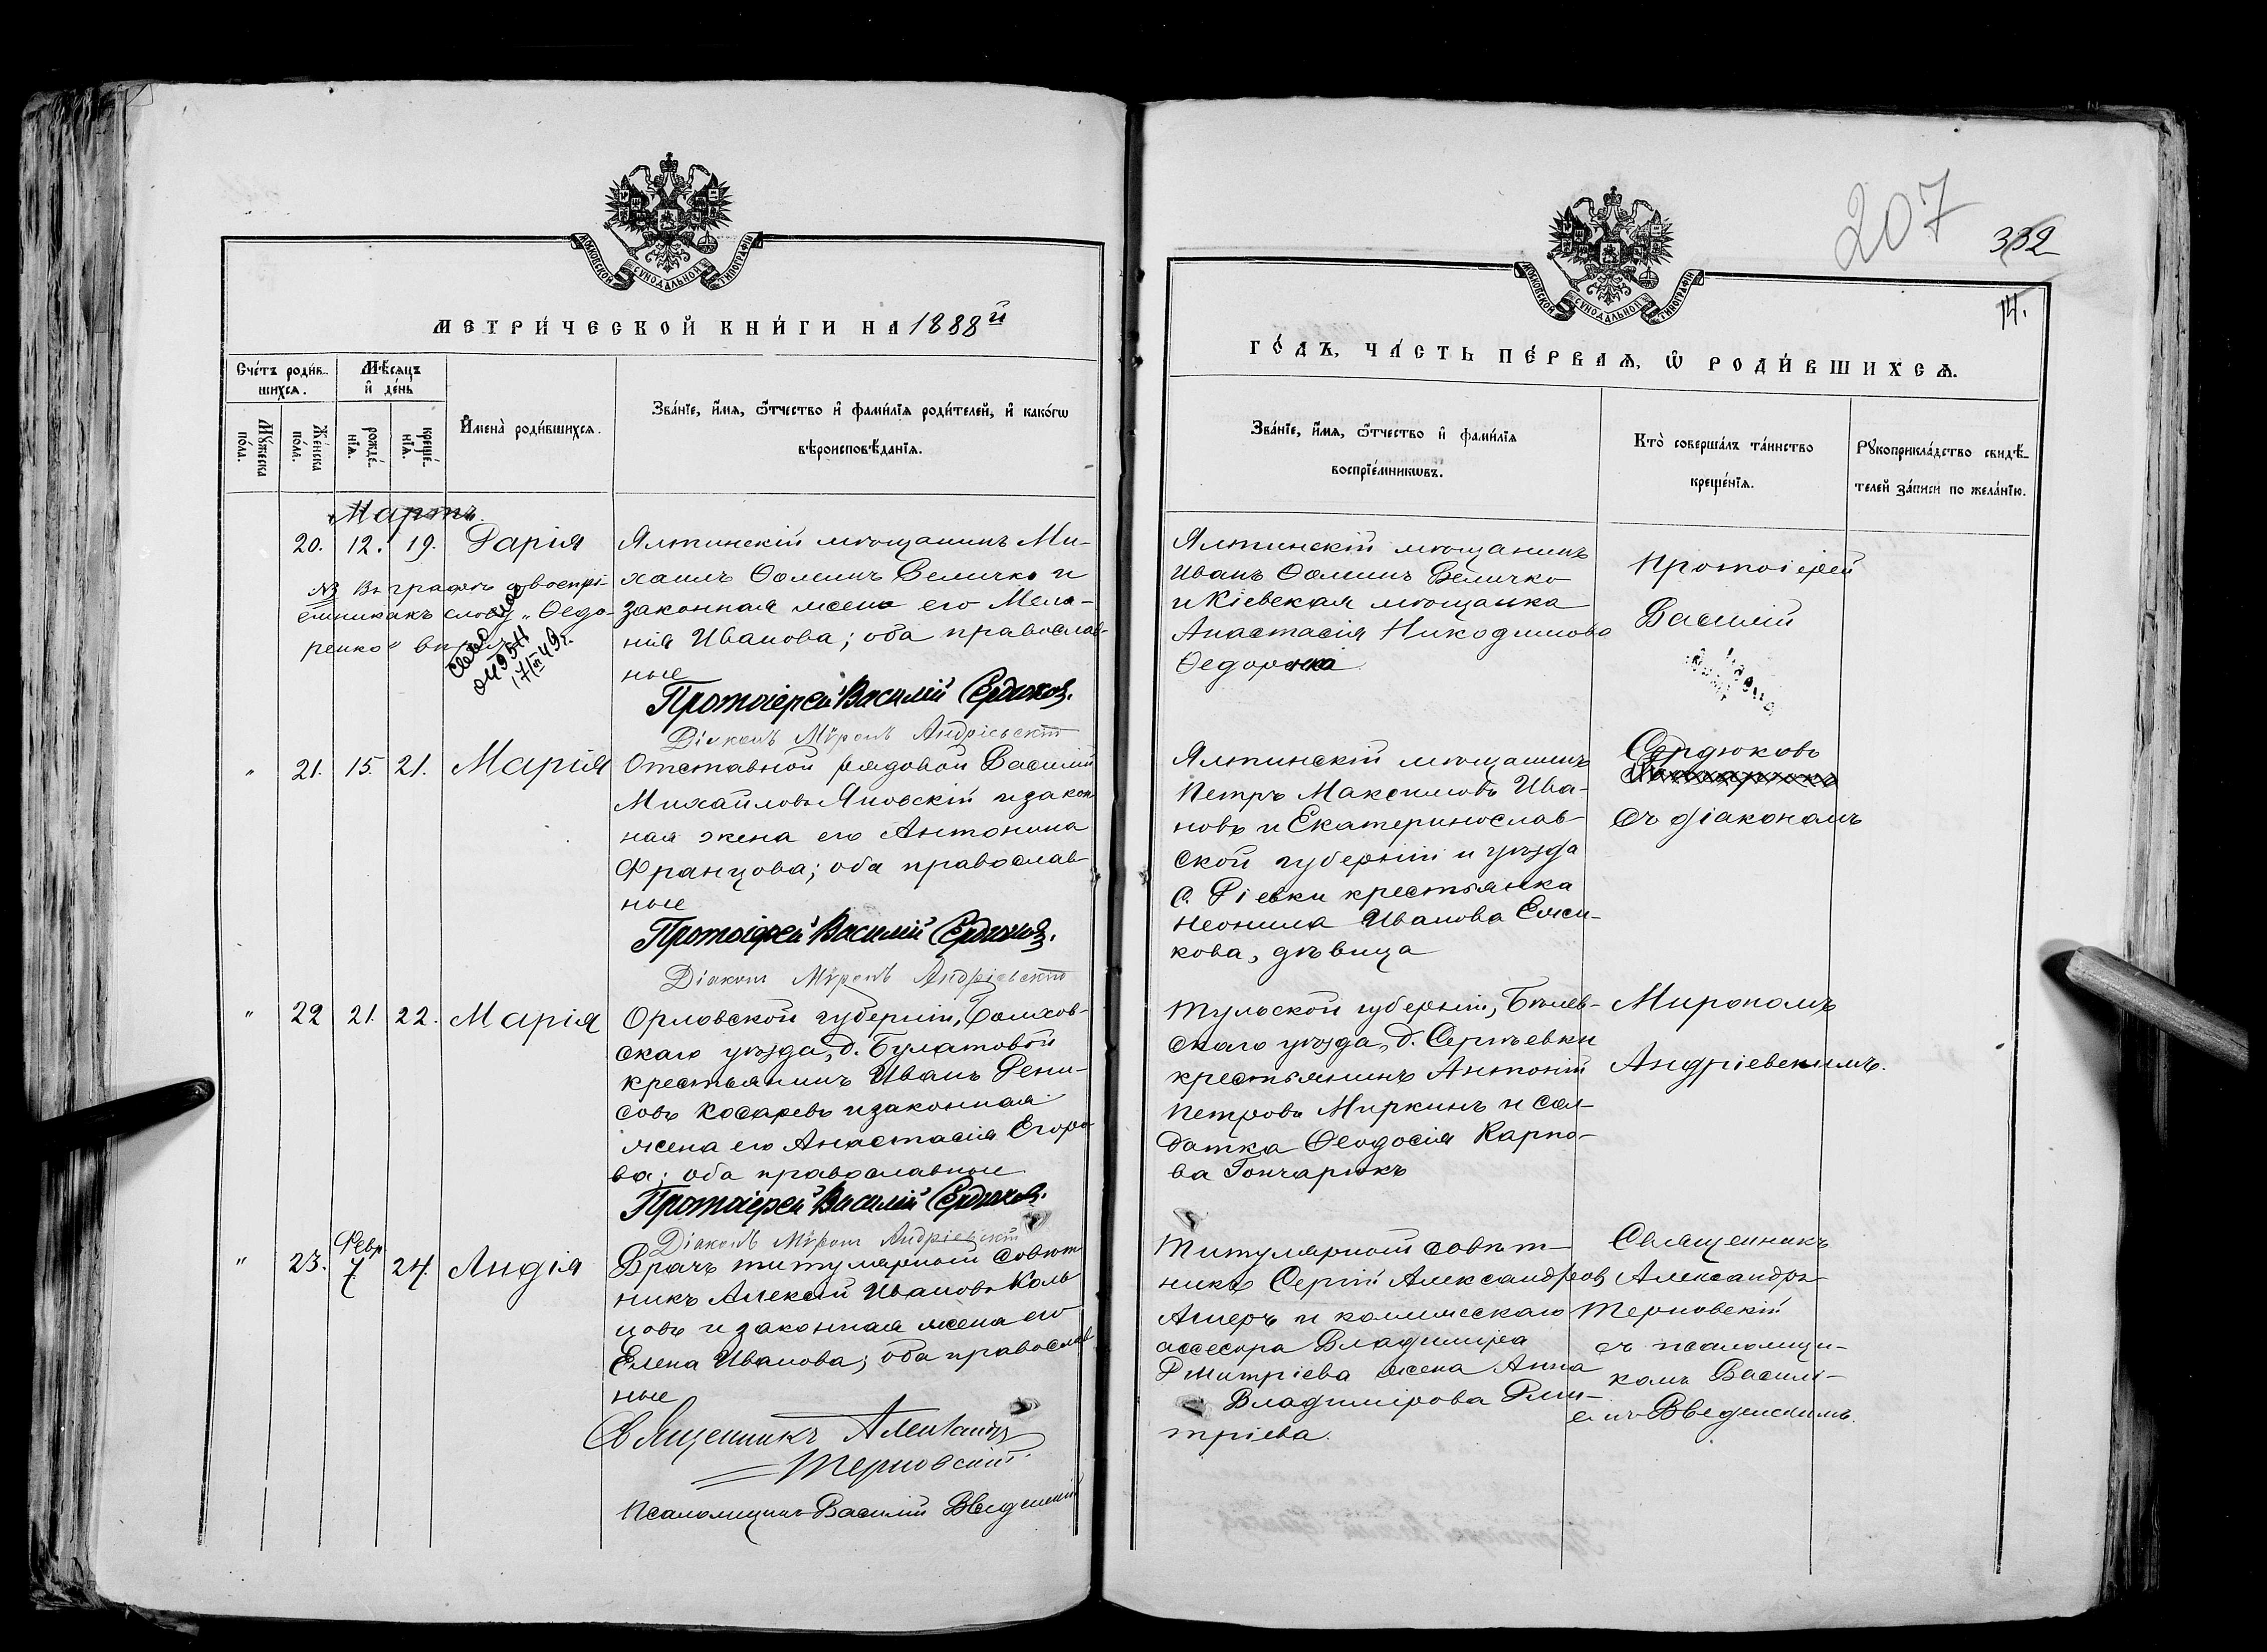 МОСКОВСКОЙ СѴНОДАЛЬНОЙ ТИПОГРАФІИ
МЕТРИ́ЧЕСКОЙ КНИ́ГИ НА 1888й
Сче́тъ роди́в-
шихся.
Мѣ́сяцъ
и҆ де́нь
Мꙋ́жеска
по́ла.
Же́нска
по́ла.
рожде́-
нїѧ.
креще́-
нїѧ.
И҆мена̀ роди́вшихсѧ.
Зва́нїе, и҆́мѧ, ѻ҆́тчество и҆ фами́лїѧ роди́телей, и҆ како́гѡ
вѣроисповѣ́данїѧ.
Мартъ.
20. 12. 19. Дарія
Ялтинскій мѣщанинъ Ми-
хаилъ Ѳоминъ Величко и
законная жена его Мела-
нія Иванова; оба православ-
ные
NB Въ графѣ о воспрі-
емникахъ слово „Ѳедо-
ренко"
Протоіерей Василій Сердюковъ.
Діаконъ Мѵронъ Андріевскій
" 21. 15. 21. Марія
Отставной рядовой Василій
Михайловъ Яновскій и закон
ная жена его Антонина
Францова; оба православ-
ные
Протоіерей Василій Сердюковъ.
Діаконъ Мѵронъ Андріевскій
" 22 21. 22. Марія
Орловской губерніи, Болхов-
скаго уѣзда, д. Булатовой
крестьянинъ Иванъ Дени-
совъ Косаревъ и законная
жена его Анастасія Егоро
ва; оба православные
Протоіерей Василій Сердюковъ.
Діаконъ Мѵронъ Андріевскій
" 23. Февр 7 24. Лидія
Врачъ титулярный совѣт
никъ Алексѣй Ивановъ Коль
цовъ и законная жена его
Елена Иванова; оба православ
ные
Священникъ Александръ
Терновскій.
Псаломщикъ Василій Введенскій
207
332
14.
МОСКОВСКОЙ СѴНОДАЛЬНОЙ ТИПОГРАФІИ
ГО́ДЪ, ЧА́СТЬ ПЕ́РВАѦ, Ѡ҆ РОДИ́ВШИХСѦ.
Зва́нїе, и҆́мѧ, ѻ҆́тчество и҆ фами́лїѧ
воспрїе́мникѡвъ.
Кто̀ соверша́лъ та́инство
креще́нїѧ.
Рꙋкоприкла́дство свидѣ́-
телей за́писи по жела́нїю.
Ялтинскій мѣщанинъ
Иванъ Ѳоминъ Величко
и Кіевская мѣщанка
Анастасія Никодимова
Протоіерей
Василій
Ялтинскій мѣщанинъ
Петръ Максимовъ Ива-
новъ и Екатеринослав-
ской губерніи и уѣзда
с. Діевки крестьянка
Неонила Иванова
кова, дѣвица
Сердюковъ
съ діакономъ
Тульской губерніи, Бѣлев-
скаго уѣзда, д. Сергѣевки
крестьянинъ Антоній
Петровъ Миркинъ и сол-
датка Ѳеодосія Карпо-
ва Гончарюкъ
Мирономъ
Андріевскимъ.
Титулярный совѣт-
никъ Сергій Александровъ
и коллежскаго
ассесора Владиміра
Дмитріева жена Анна
Владимірова Дми-
тріева.
Священникъ
Александръ
Терновскій
съ псаломщи-
комъ Василі-
емъ Введенскимъ.